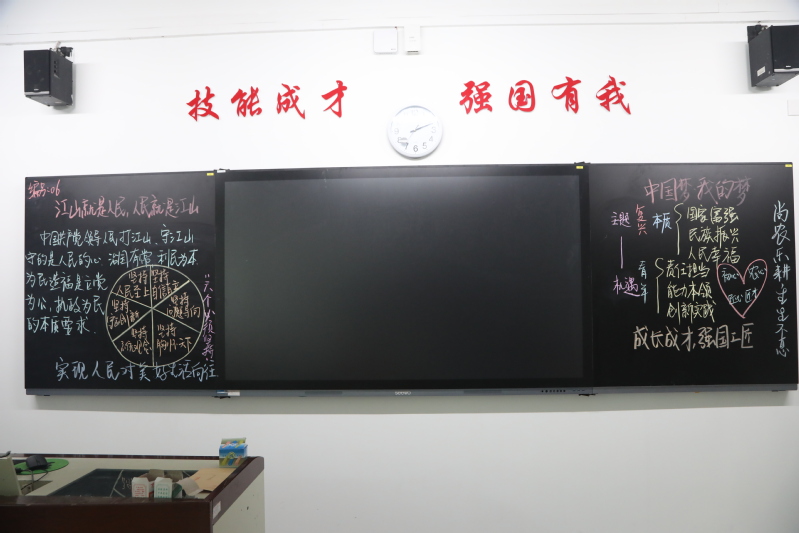 技能成才 强国有我
编号:06
江山就是人民,人民就是江山
中国共产党领导人民打江山、守江山
守的是人民的心 治国有常 利民为本
为民造福是立党
为公,执政为民
的本质要求
坚持
人民至上
坚持
自信自立
坚持
守正创新
坚持
问题导向
坚持
系统观念
坚持
胸怀天下
"六个必须坚持"
实现人民对美好生活向往
中国梦 我的梦
主题
复兴
本质
国家富强
民族振兴
人民幸福
机遇
青年
责任担当
能力本领
创新实践
初心
农心
匠心
成长成才,强国工匠
尚农乐耕 生生不息